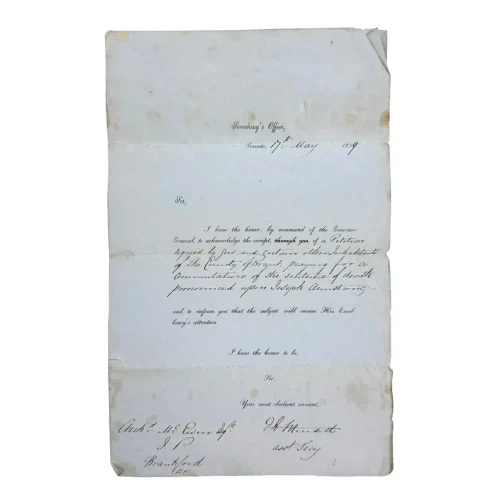 Secretary's Office,
Toronto, 17th May 1859
Sir,
I have the honor, by command of the Governor
General, to acknowledge the receipt, through you, of a Petition
signed by you and certain other Inhabitants
of the County of Brant, praying for a
Commutation of the sentence of death
pronounced upon Joseph Armstrong
and to inform you that the subject will receive His Excel-
lency's attention.
I have the honor to be,
Sir,
Your most obedient servant,
Archd. McEwen Esqr.
J P
Asst Secy
Brantford